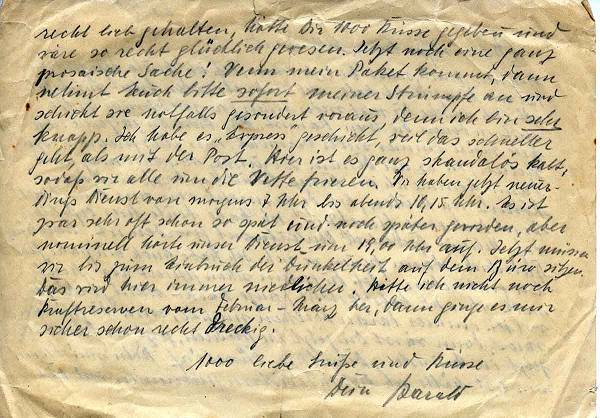 recht lieb gehalten, hätte Dir 1000 Küsse gegeben und
wäre so recht glücklich gewesen. Jetzt noch eine ganz
prosaische Sache! Wenn mein Paket kommt, dann
nehmt Euch bitte sofort meiner Strümpfe an und
schickt sie notfalls gesondert voraus, denn ich bin sehr
knapp. Ich habe es „Express" geschickt, weil das schneller
geht, als mit der Post. Hier ist es ganz skandalös kalt,
sodaß wir alle um die Wette frieren. Wir haben jetzt neuer-
dings Dienst von morgens 7 Uhr bis abends 10,15 Uhr. Es ist
zwar sehr oft schon so spät und noch später geworden, aber
nominell hörte unser Dienst um 19,00 Uhr auf. Jetzt müssen
wir bis zum Einbruch der Dunkelheit auf dem Büro sitzen.
Das wird hier immer niedlicher. Hätte ich nicht noch
Kraftreserven vom Februar-März her, dann ginge es mir
sicher schon recht dreckig.
1000 liebe Grüße und Küsse
Dein Harald